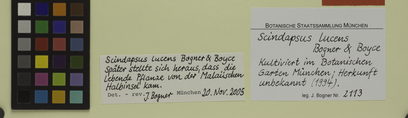 Scindapsus lucens Bogner & Boyce
Später stellte sich heraus, dass die
lebende Pflanze von der Malaiischen
Halbinsel kam.
Det. - rev. J. Bogner München 20. Nov. 2005
BOTANISCHE STAATSSAMMLUNG MÜNCHEN
Scindapsus lucens
Bogner & Boyce
Kultiviert im Botanischen
Garten München; Herkunft
unbekannt (1994).
leg. J. Bogner Nr. 2113